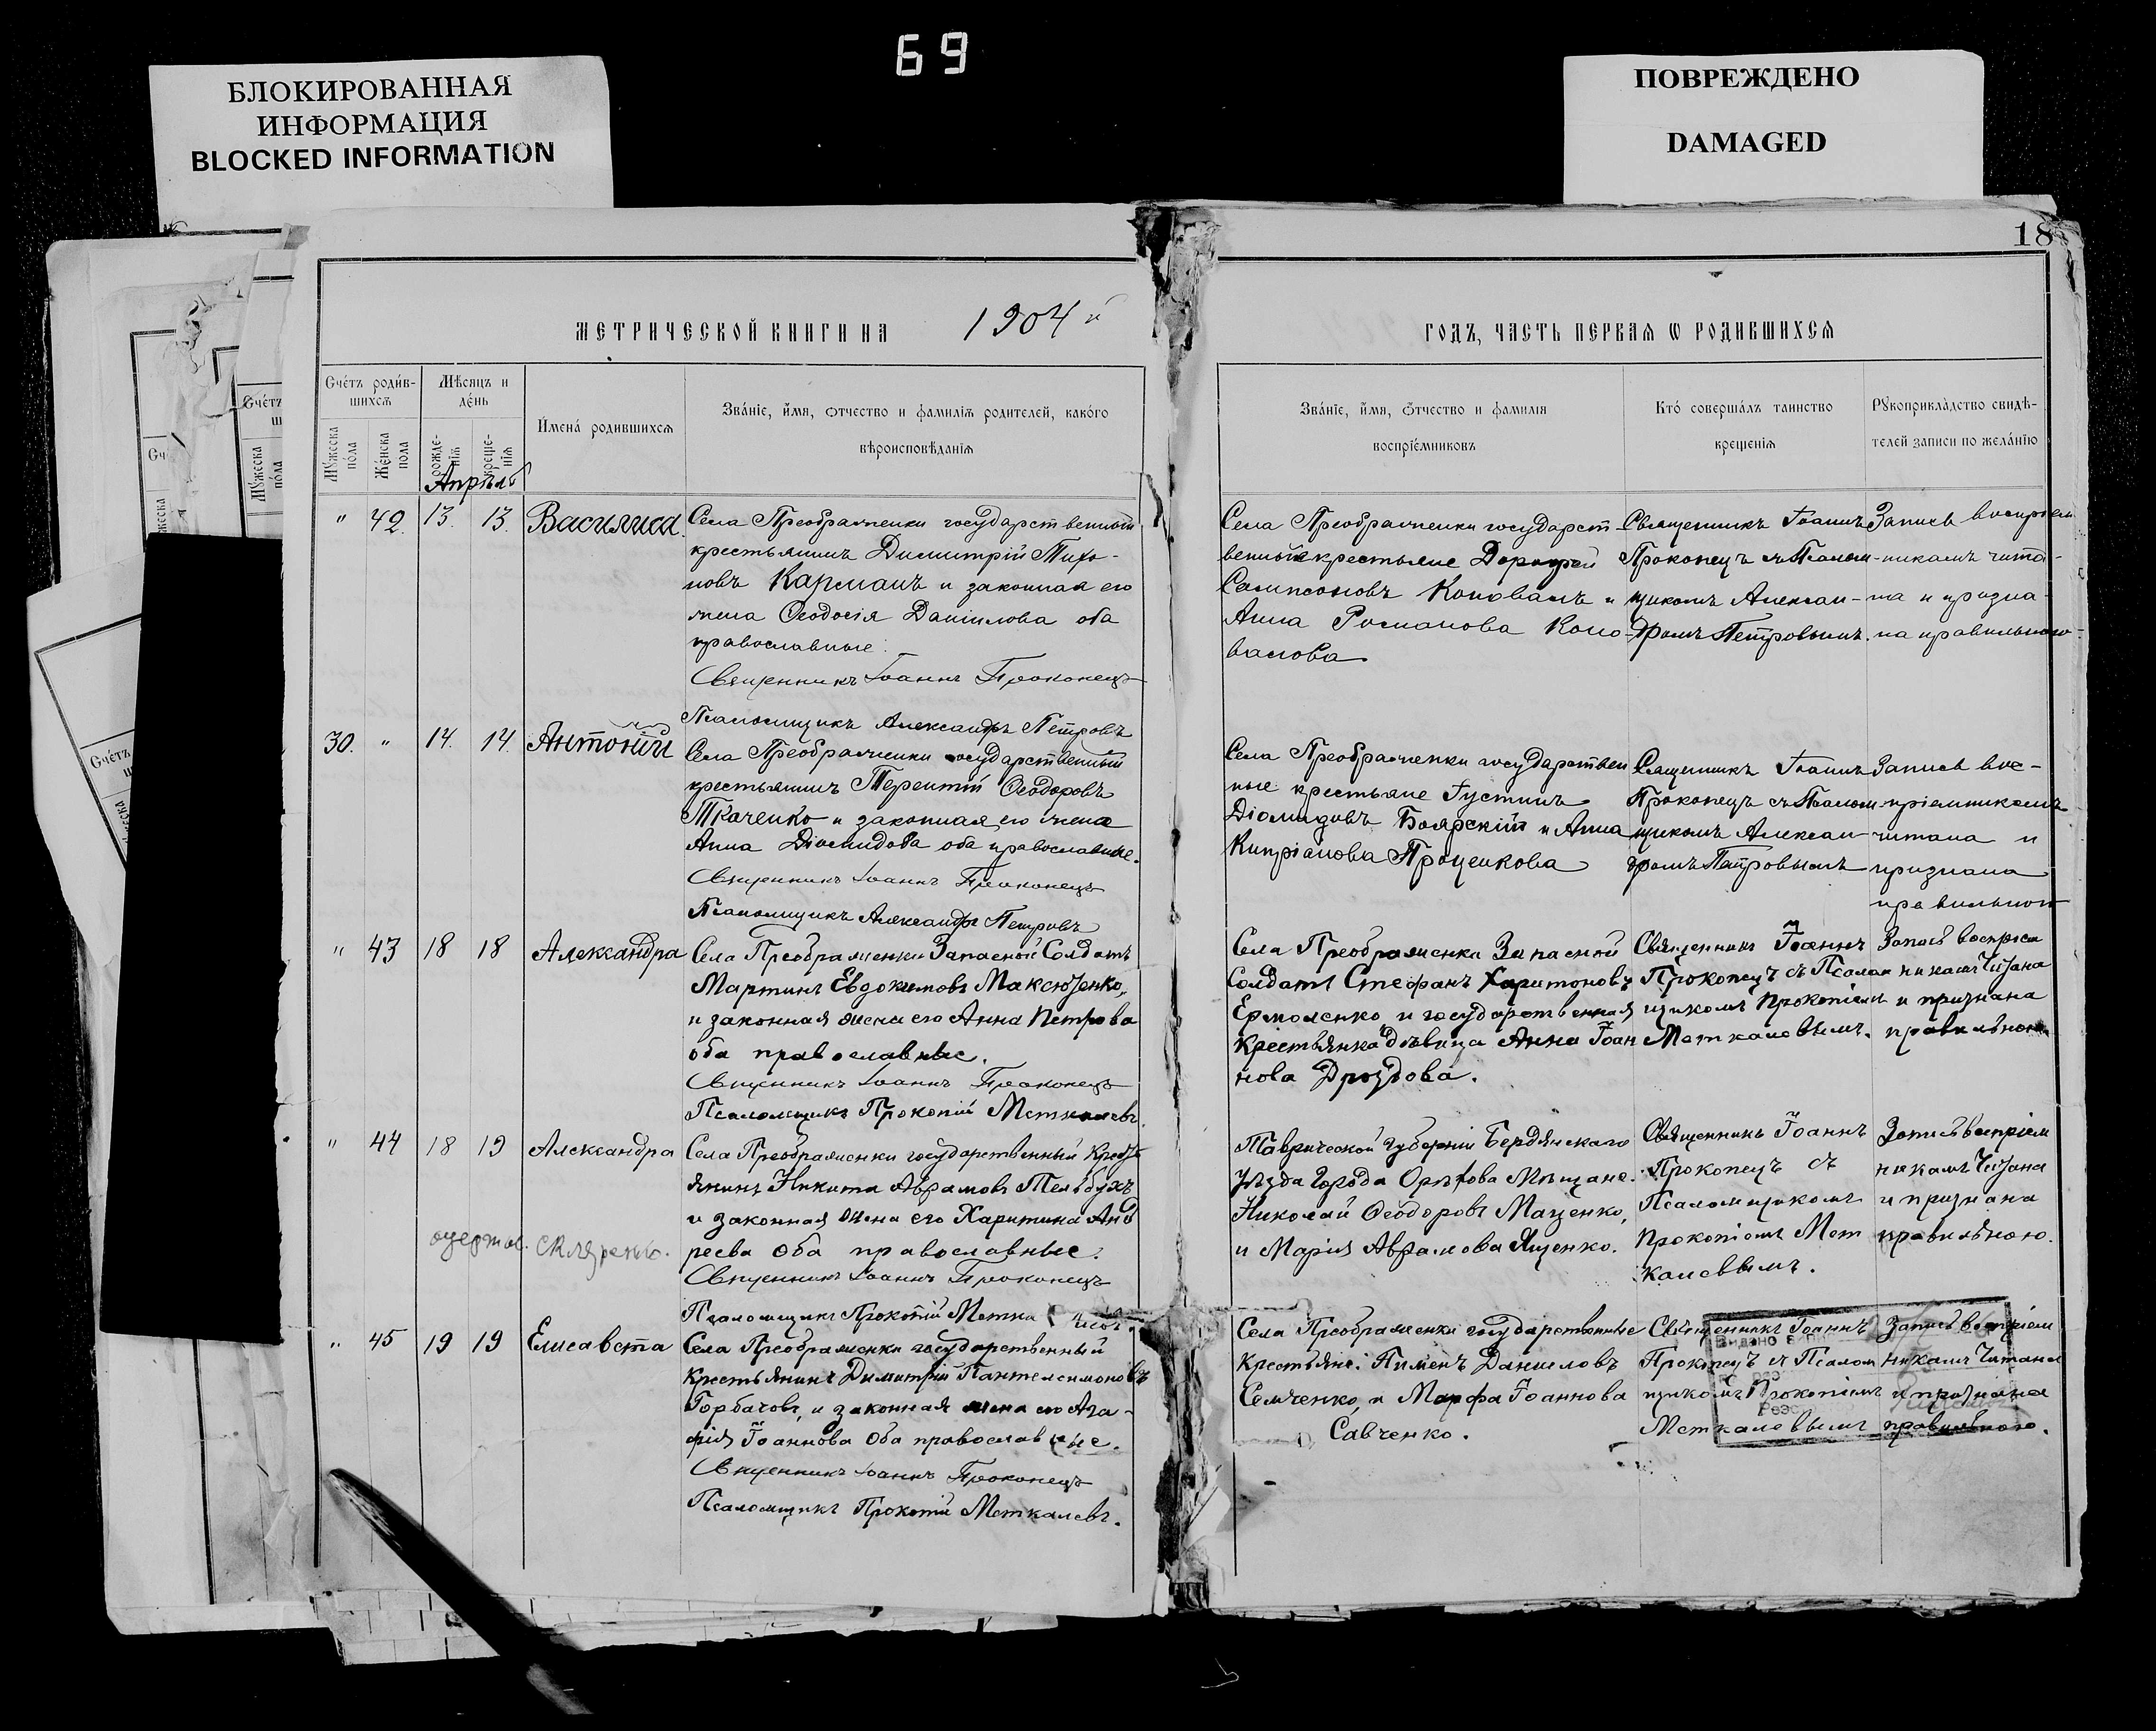 69
БЛОКИРОВАННАЯ
ИНФОРМАЦИЯ
BLOCKED INFORMATION
ПОВРЕЖДЕНО
DAMAGED
18
МЕТРИЧЕСКОЙ КНИГИ НА 1904 й
ГОДЪ, ЧАСТЬ ПЕРВАЯ Ѡ РОДИВШИХСЯ
Счетъ родив-
шихся
Мѣсяцъ и
день
Мужеска
пола
Женска
пола
рожде-
нія
креще-
нія
Имена родившихся
Званіе, имя, отчество и фамилія родителей, какого
вѣроисповѣданія
Званіе, имя, отчество и фамилія
воспріемниковъ
Кто совершалъ таинство
крещенія
Рукоприкладство свидѣ-
телей записи по желанію
Апрѣль
" 42. 13. 13. Василиса.
Села Преображенки государственный
крестьянинъ Димитрій Тихо-
новъ Карманъ и законная его
жена Ѳеодосія Даніилова оба
православные.
Священникъ Іоаннъ Прокопецъ
Псаломщикъ Александръ Петровъ
Села Преображенки государст-
венные крестьяне Дорофей
Сампсоновъ Коновалъ и
Анна Романова Коно-
валова
Священникъ Іоаннъ
Прокопецъ съ Псалом-
щикомъ Алексан-
дромъ Петровымъ.
Запись воспріем
никамъ чита-
на и призна-
на правильною.
30. " 14. 14. Антоній
Села Преображенки государственный
крестьянинъ Терентій Ѳеодоровъ
Ткаченко и законная его жена
Анна Діомидова оба православные.
Священникъ Іоаннъ Прокопецъ
Псаломщикъ Александръ Петровъ
Села Преображенки государствен
ные крестьяне Іустинъ
Діомидовъ Боярскій и Анна
Кипріанова Проценкова
Священникъ Іоаннъ
Прокопецъ съ Псалом
щикомъ Алексан-
дромъ Петровымъ
Запись вос-
пріемникамъ
читана и
признана
правильною
" 43 18 18 Александра
Села Преображенки Запасной Солдатъ
Мартинъ Евдокимовъ Максютенко,
и законная жена его Анна Петрова
оба православные.
Священникъ Іоаннъ Прокопецъ
Псаломщикъ Прокопій Меткалевъ.
Села Преображенки Запасной
Солдатъ Стефанъ Харитоновъ
Ермоленко и государственная
крестьянка дѣвица Анна Іоан
нова Дроздова.
Священникъ Іоаннъ
Прокопецъ съ Псалом
щикомъ Прокопіемъ
Меткалевымъ.
Запись воспріем
никамъ Читана
и признана
правильною
" 44 18 19 Александра
Села Преображенки государственный Кресть
янинъ Никита Аврамовъ Тельбухъ
и законная жена его Харитина Анд
реева оба православные.
Священникъ Іоаннъ Прокопецъ
Псаломщикъ Прокопій Меткалевъ.
Таврической губерніи Бердянскаго
уѣзда города Орѣхова Мѣщане.
Николай Ѳеодоровъ Маценко,
и Марія Аврамова Яценко.
Священникъ Іоаннъ
Прокопецъ съ
Псаломщикомъ
Прокопіемъ Мет
калевымъ.
Запись воспріем
никамъ Читана
и признана
правильною.
" 45 19 19 Елисавета
Села Преображенки государственный
крестьянинъ Димитрій Пантелеимоновъ
Горбачовъ, и законная жена его Ага-
фія Іоаннова оба православные.
Священникъ Іоаннъ Прокопецъ
Псаломщикъ Прокопій Меткалевъ.
Села Преображенки государственные
крестьяне: Пименъ Даниловъ
Семченко, и Марфа Іоаннова
Савченко.
Священникъ Іоаннъ
Прокопецъ съ Псалом
щикомъ Прокопіемъ
Меткалевымъ
Запись воспріем
никамъ Читана
и признана
правильною.